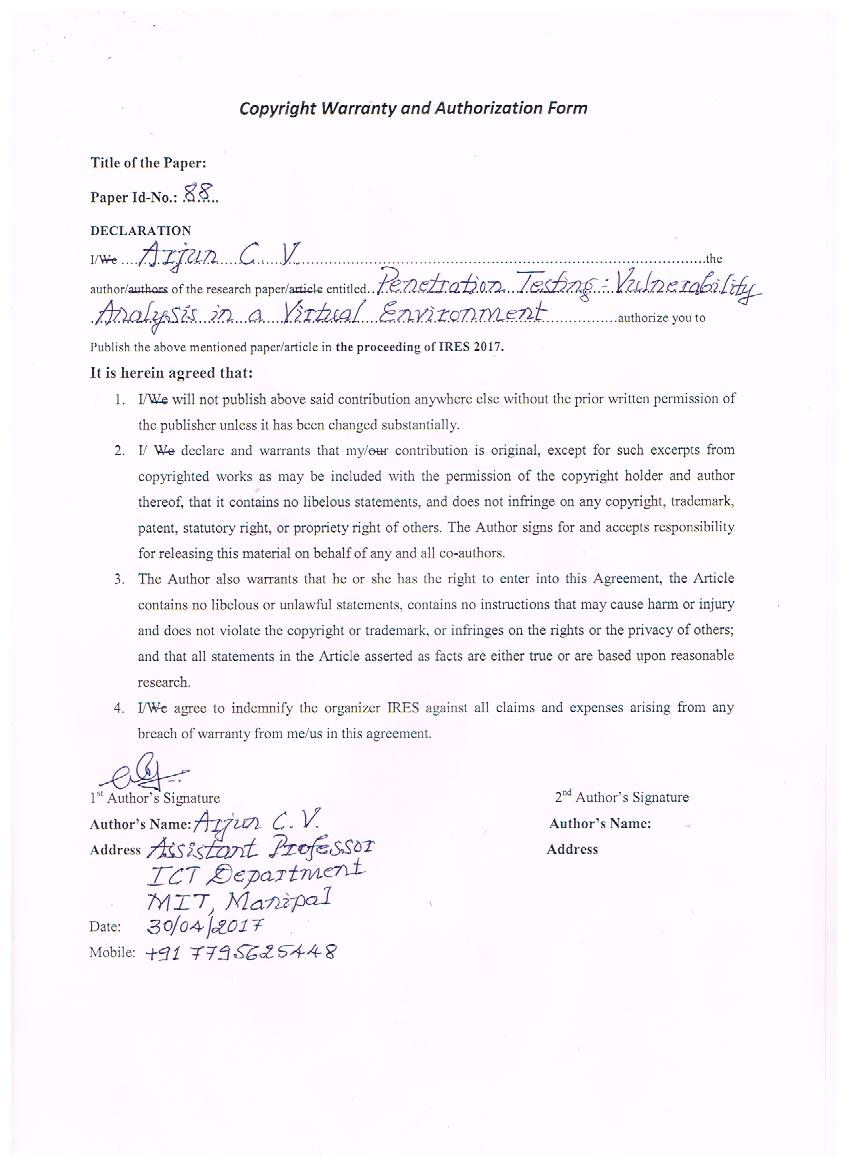 Copyright Warranty and Authorization Form
Title of the Paper:
Paper Id-No.: 88
DECLARATION
I/We ....Arjun C. V.............the
author/authors of the research paper/article entitled..Penetration Testing : Vulnerability
Analysis in a Virtual Environment................authorize you to
Publish the above mentioned paper/article in the proceeding of IRES 2017.
It is herein agreed that:
1. I/We will not publish above said contribution anywhere else without the prior written permission of
the publisher unless it has been changed substantially.
2. I/ We declare and warrants that my/our contribution is original, except for such excerpts from
copyrighted works as may be included with the permission of the copyright holder and author
thereof, that it contains no libelous statements, and does not infringe on any copyright, trademark,
patent, statutory right, or propriety right of others. The Author signs for and accepts responsibility
for releasing this material on behalf of any and all co-authors.
3. The Author also warrants that he or she has the right to enter into this Agreement, the Article
contains no libelous or unlawful statements, contains no instructions that may cause harm or injury
and does not violate the copyright or trademark, or infringes on the rights or the privacy of others;
and that all statements in the Article asserted as facts are either true or are based upon reasonable
research.
4. I/We agree to indemnify the organizer IRES against all claims and expenses arising from any
breach of warranty from me/us in this agreement.
1st Author's Signature
2nd Author's Signature
Author's Name: Arjun C. V.
Author's Name:
Address Assistant Professor
Address
ICT Department
MIT, Manipal
Date: 30/04/2017
Mobile: +91 7795625448